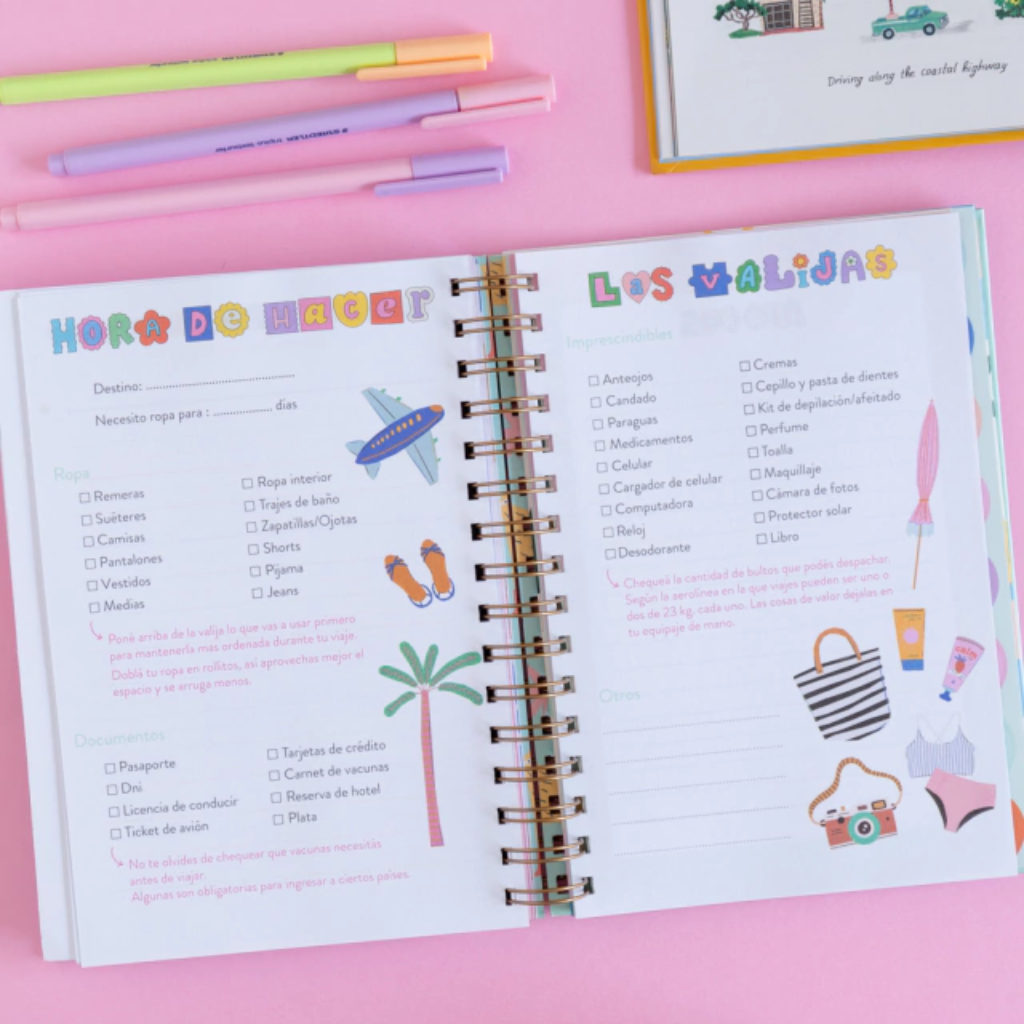 STAEDTLER
Driving along the coastal highway
HORA DE HACER
Destino: ............................................
Necesito ropa para : .................. días
Ropa
☐ Remeras
☐ Suéteres
☐ Camisas
☐ Pantalones
☐ Vestidos
☐ Medias
☐ Ropa interior
☐ Trajes de baño
☐ Zapatillas/Ojotas
☐ Shorts
☐ Pijama
☐ Jeans
Poné arriba de la valija lo que vas a usar primero
para mantenerla mas ordenada durante tu viaje.
Doblá tu ropa en rollitos, así aprovechas mejor el
espacio y se arruga menos.
Documentos
☐ Pasaporte
☐ Dni
☐ Licencia de conducir
☐ Ticket de avión
☐ Tarjetas de crédito
☐ Carnet de vacunas
☐ Reserva de hotel
☐ Plata
No te olvides de chequear que vacunas necesitás
antes de viajar.
Algunas son obligatorias para ingresar a ciertos países.
LAS VALIJAS
Imprescindibles
☐ Anteojos
☐ Candado
☐ Paraguas
☐ Medicamentos
☐ Celular
☐ Cargador de celular
☐ Computadora
☐ Reloj
☐ Desodorante
☐ Cremas
☐ Cepillo y pasta de dientes
☐ Kit de depilación/afeitado
☐ Perfume
☐ Toalla
☐ Maquillaje
☐ Cámara de fotos
☐ Protector solar
☐ Libro
Chequeá la cantidad de bultos que podés despachar.
Según la aerolínea en la que viajes pueden ser uno o
dos de 23 kg. cada uno. Las cosas de valor dejalas en
tu equipaje de mano.
calm
Otros